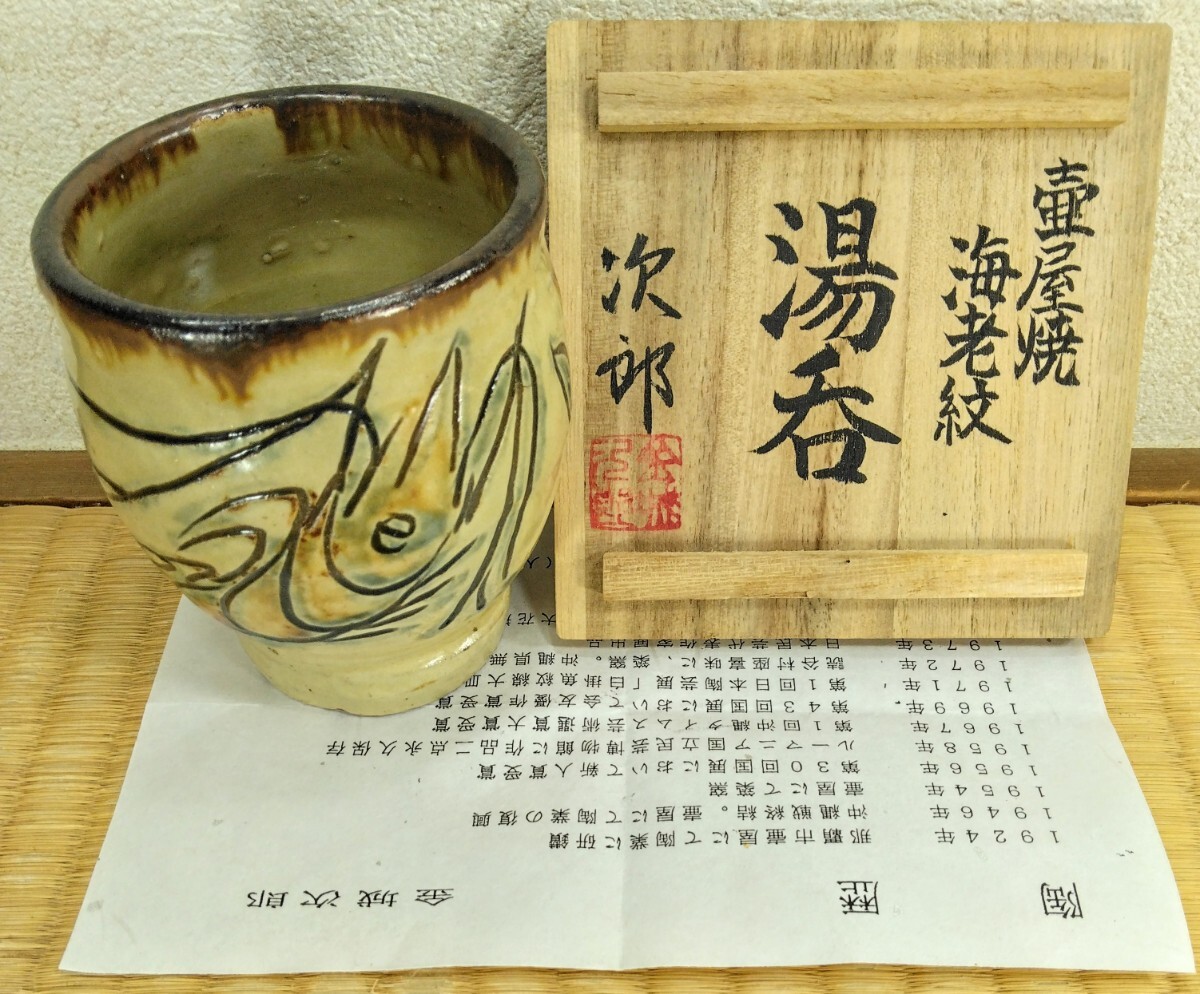 壷屋焼
海老紋
湯呑
次郎
陶歴 金城次郎
1924年 那覇市壷屋にて陶業に研鑽
1946年 沖縄戦終結。壷屋にて陶業の復興
1954年 壷屋にて築窯
1956年 第30回国展において新人賞受賞
1958年 ルーマニア国立民芸博物館に作品二点永久保存
1967年 第1回沖縄タイムス芸術選賞大賞受賞
1969年 第43回国展において会友優作賞受賞
1971年 第1回日本陶芸展「白掛魚紋線大皿
1972年 読谷村座喜味に、築窯。沖縄県無
1973年 日本民芸代表作家展出品